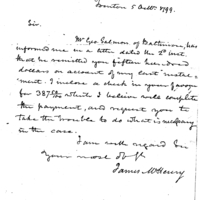 Trenton 5 Octbr. 1799.
Sir.
Mr Geo. Salmon of Baltimore, has
informed me in a letter dated the 2d inst.
that he remitted you fifteen hundred
dollars on account of my
I inclose a check in your favour
for 387 which I believe will complete
the payment, and request you to
take the trouble to do what is necessary
in the case.
I am with regard Sir
Your most Ob St
James McHenry